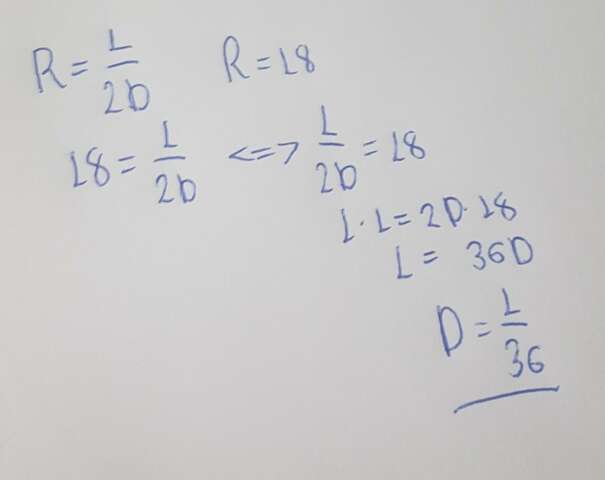 R = 1/2D   R = 18
18 = 1/2D <=> 1/2D = 18
1 · 1 = 2D · 18
1 = 36D
D = 1/36